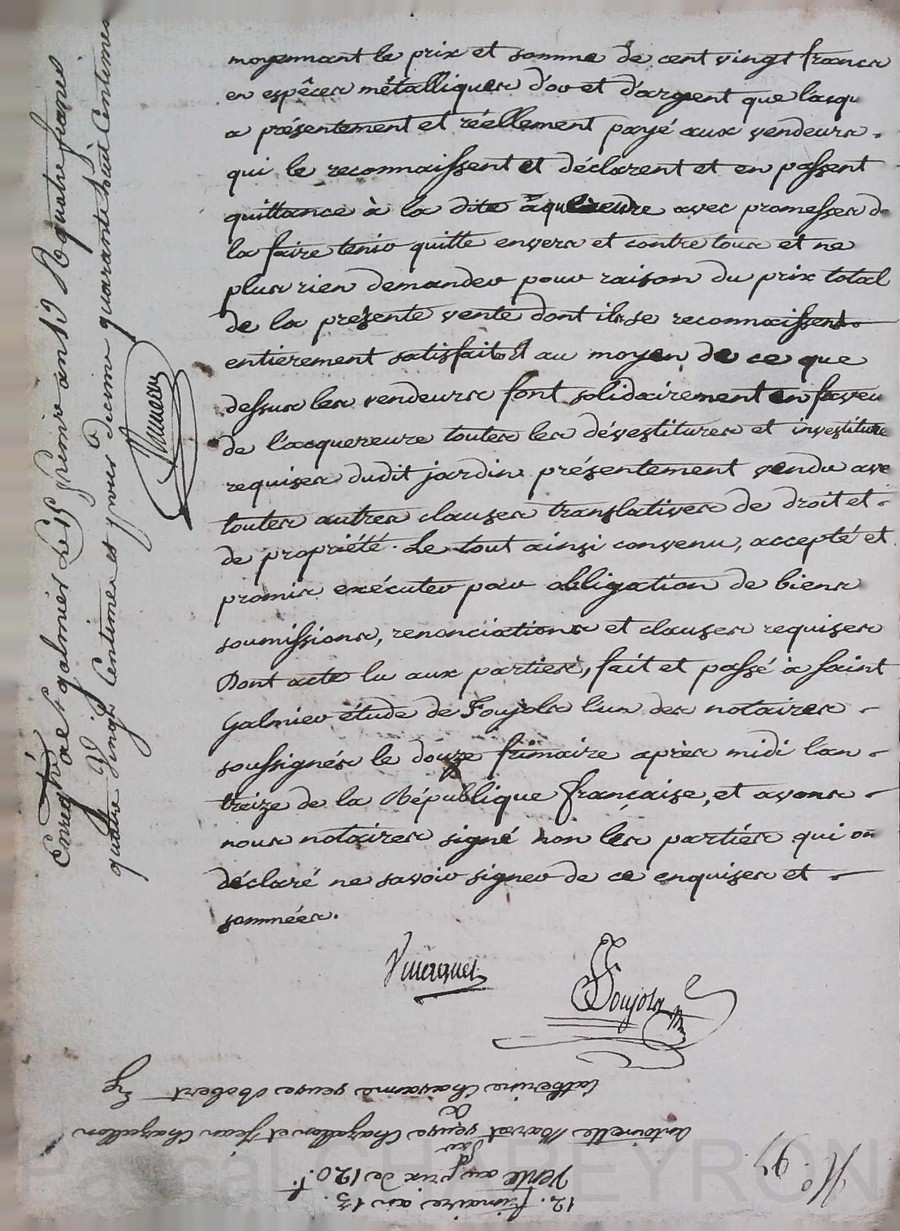 moyennant le prix et somme de cent vingt francs
en espêces métalliques d'or et d'argent que l'acqu
a présentement et réellement payé aux vendeurs.
qui le reconnaissent et déclarent et en passent
quittance à la dite aquereure avec promesses de
la faire tenir quitte envers et contre tous et ne
plus rien demander pour raison du prix total
de la présente vente dont ils se reconnaissent
entierement satisfaits Et au moyen de ce que
dessus les vendeurs font solidairement en faveu
de l'acquereure toutes les dévestitures et investiture
requises dudit jardin présentement vendu ave
toutes autres clauses translatives de droit et
de propriété. Le tout ainsi convenu, accepté et
promis exécuter par obligation de biens
soumissions, renonciations et clauses requises
Dont acte lu aux parties, fait et passé à saint
Galmier étude de Foujols l'un des notaires
soussignés le douze frimaire après midi l'an
treize de la République française, et avons
nous notaires signé non les parties qui on
déclaré ne savoir signer de ce enquises et
sommées.
Foujols
Enregtré à St galmier le 15 frimaire an 13 R quatre francs
quatre vingt centimes et pour décime quarante huit centimes
No. 97
12. frimaire an 13.
Vente au prix de 120 f.
par
Antoinette veuve Chazallon et Jean Chazallon
à
Catherine Chavanne veuve Robert